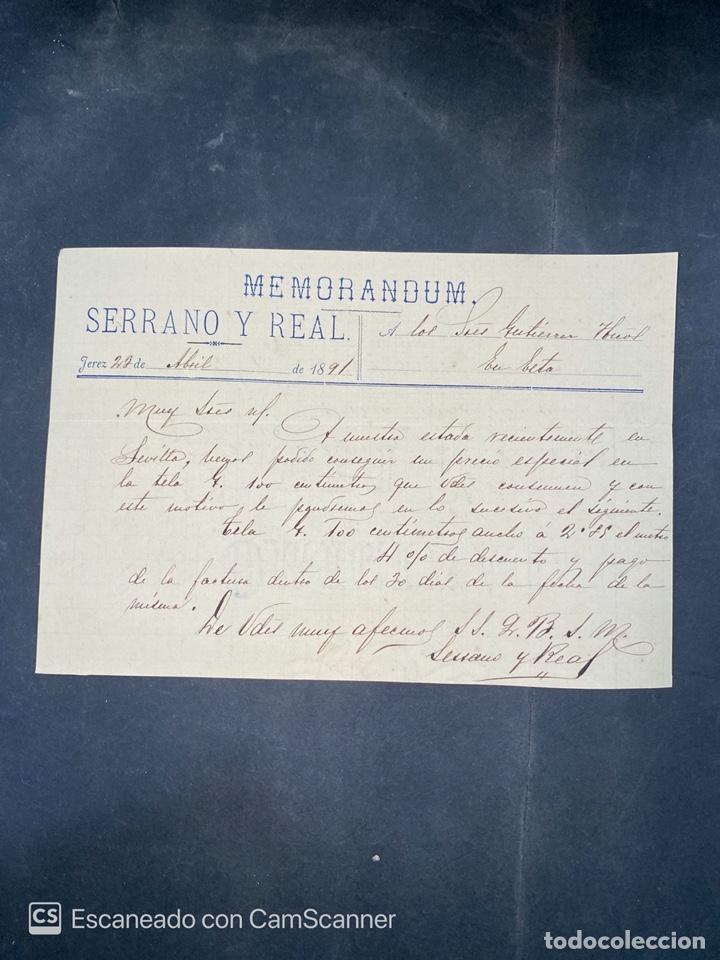 MEMORANDUM.
SERRANO Y REAL.
A los Sres Gutierrez Hnos
Jerez 23 de Abril de 1891
En Esta
Muy Sres ns.
A nuestra estada recientemente en
Sevilla, hemos podido conseguir un precio especial en
la tela 100 centimetros que Vdes consumen y con
este motivo le pondremos en lo sucesivo el siguiente.
tela 100 centimetros ancho á 2'85 el metro
4 o/o de descuento y pago
de la factura dentro de los 30 dias de la fecha de la
misma.
De Vdes muy afecmos S. S. Q. B. S. M.
Serrano y Real
CS Escaneado con CamScanner
todocoleccion